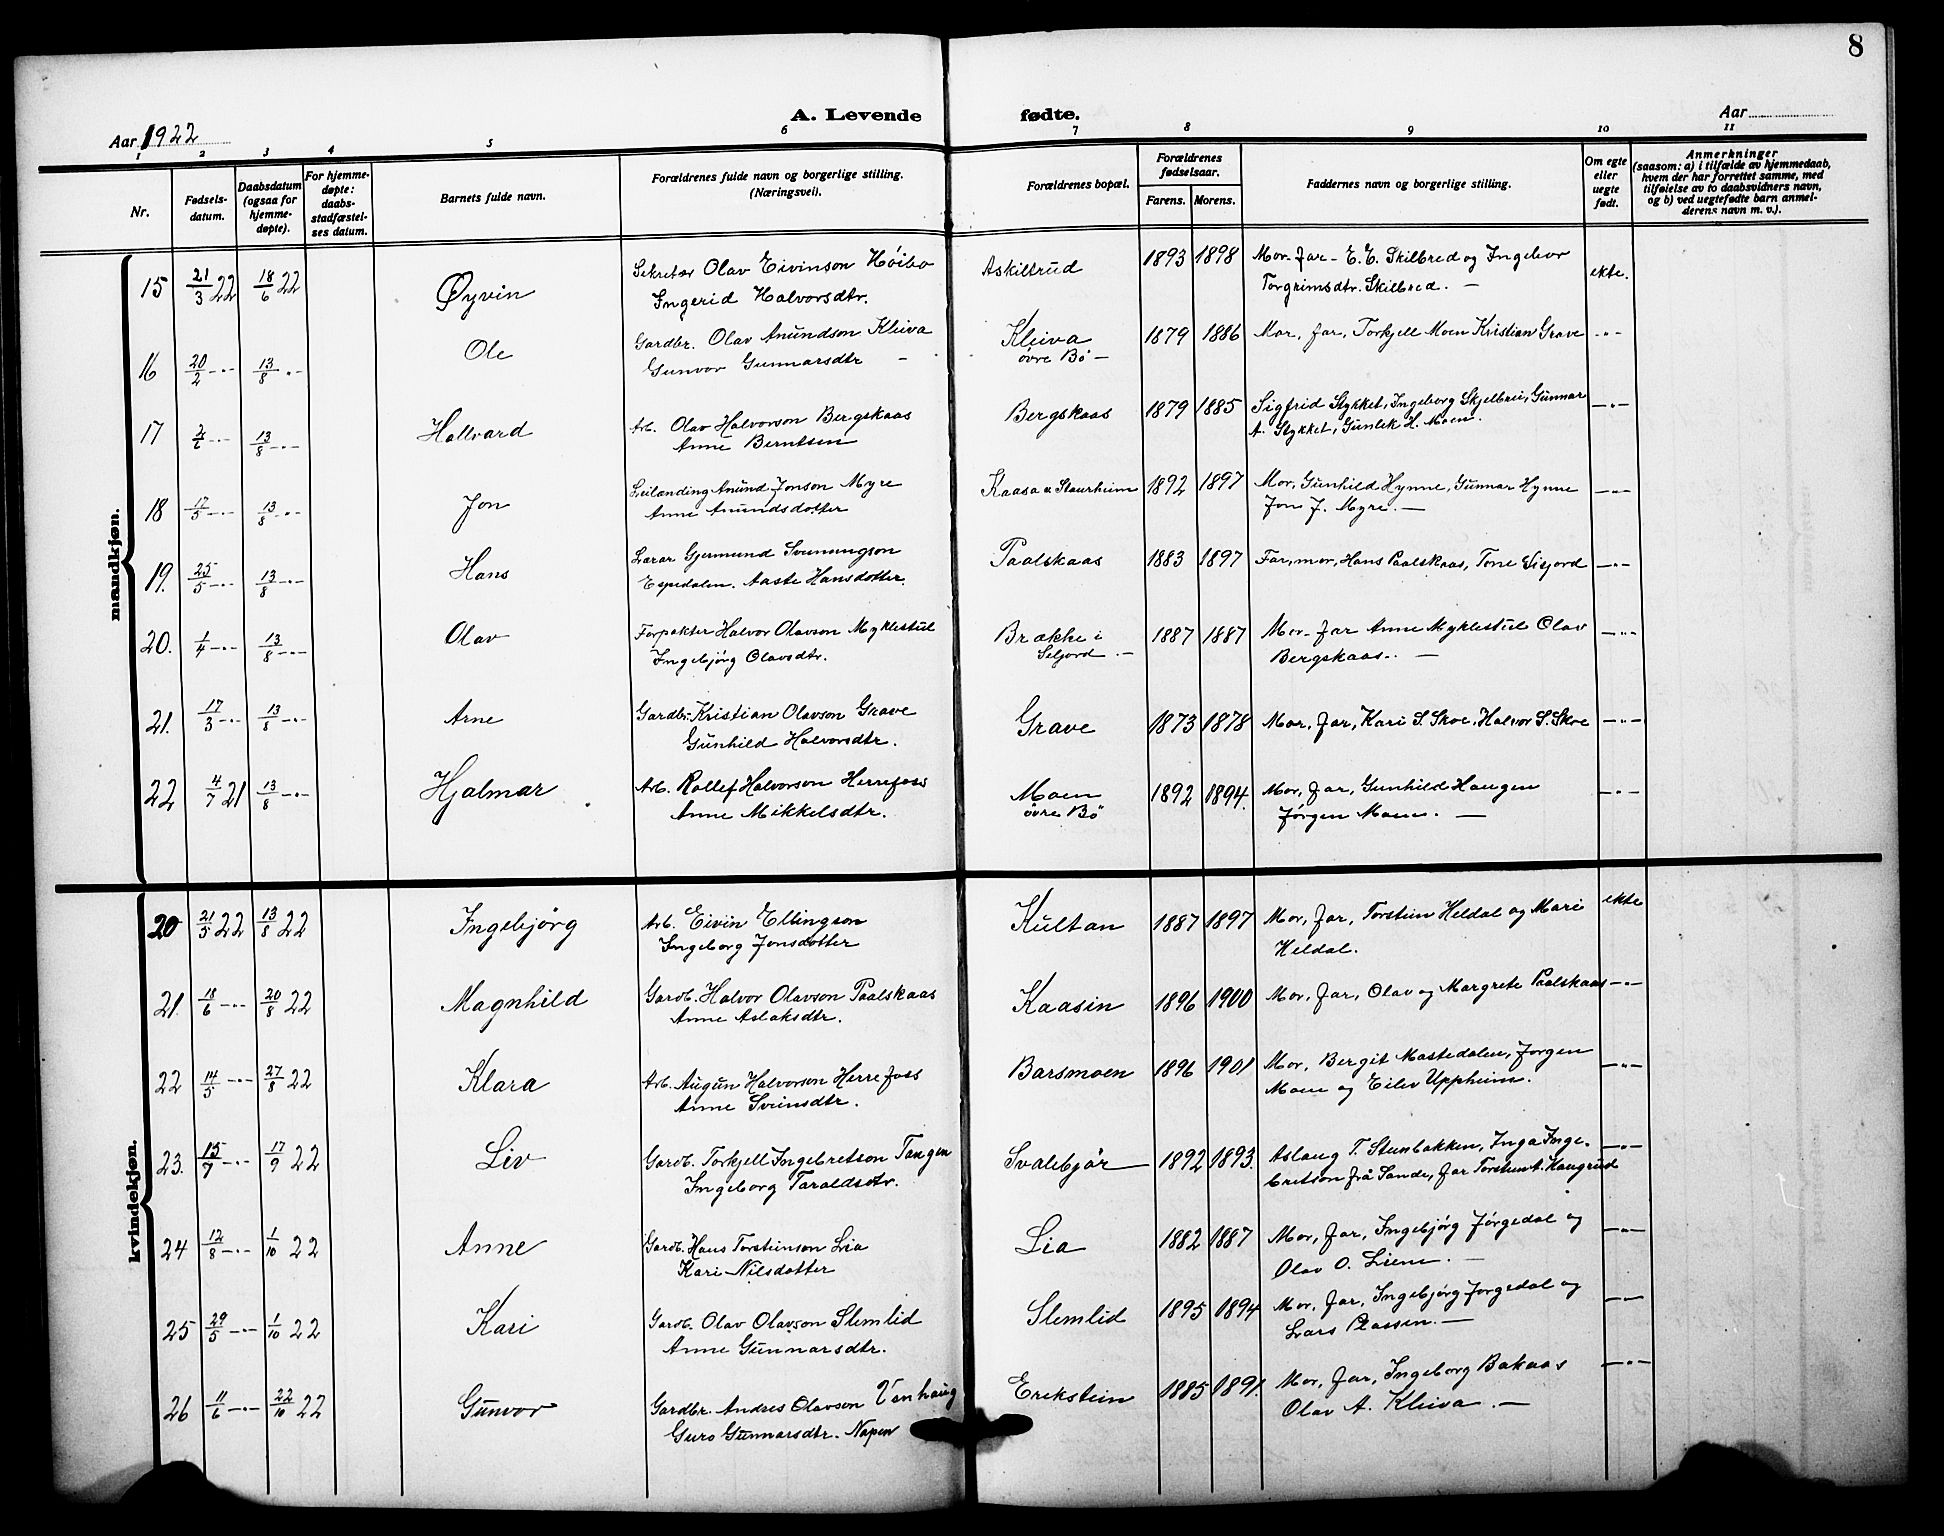 8
A. Levende fødte.
Aar 1922
Aar
1 2 3 4 5 6 7 8 9 10 11
Nr.
Fødsels-
datum.
Daabsdatum
(ogsaa for
hjemme-
døpte).
For hjemme-
døpte:
daabs-
stadfæstel-
ses datum.
Barnets fulde navn.
Forældrenes fulde navn og borgerlige stilling.
(Næringsvei).
Forældrenes bopæl.
Forældrenes
fødselsaar.
Farens. Morens.
Faddernes navn og borgerlige stilling.
Om egte
eller
uegte
født.
Anmerkninger
(saasom: a) i tilfælde av hjemmedaab,
hvem der har forrettet samme, med
tilføielse av to daabsvidners navn,
og b) ved uegtefødte barn anmel-
derens navn m. v.).
mandkjøn.
15 21/3 22 18/6 22 Øyvin Sekretær Olav Eivinson Høibo Askiltrud 1893 1898 Mor - far - E. E. Skilbred og Ingebor ekte.
Ingerid Halvorsdtr. Torgrimsdtr. Skilbred. —
16 20/2 -"- 13/8 -"- Ole Gardbr. Olav Anundson Kleiva Kleiva 1879 1886 Mor, far, Torkjell Moen Kristian Grave -"-
Gunvor Gunnarsdtr - øvre Bø -
17 2/6 -"- 13/8 -"- Hallvard Arb. Olav Halvorson Bergskaas Bergskaas 1879 1885 Sigfrid Stykket, Ingeborg Skjelbrei, Gunnar -"-
Anne Berntsen A. Stykket, Gunlek H. Moen.
18 17/5 -"- 13/8 -"- Jon Leilending Anund Jonson Myre Kaasa u Staurheim 1892 1897 Mor, Gunhild Hynne, Gunnar Hynne -"-
Anne Anundsdotter Jon J. Myre. —
19. 25/5 -"- 13/8 -"- Hans Lærar Gjermund Sveinungson Paalskaas 1883 1897 Far, mor, Hans Paalskaas, Tone Sisjord -"-
Espedalen. Aaste Hansdotter.
20. 1/4 -"- 13/8 -"- Olav Forpakter Halvor Olavson Myklestul Brække i 1887 1887 Mor - far Anne Myklestul Olav -"-
Ingebjørg Olavsdtr. Seljord - Bergskaas. —
21. 17/3 -"- 13/8 -"- Arne Gardbr. Kristian Olavson Grave Grave 1873 1878 Mor, far, Kari S. Skoe, Halvor S. Skoe -"-
Gunhild Halvorsdtr.
22 4/7 21 13/8 -"- Hjalmar Arb. Rollef Halvorson Herrefoss Moen 1892 1894. Mor, far, Gunhild Haugen -"-
Anne Mikkelsdtr. øvre Bø Jørgen Moen. —
kvindekjøn.
20 21/5 22 13/8 22 Ingebjørg Arb. Eivin Eltingson Kultan 1887 1897 Mor, far, Torstein Heldal og Mari ekte
Ingeborg Jonsdotter Heldal.
21. 18/6 -"- 20/8 22 Magnhild Gardb. Halvor Olavson Paalskaas Kaasin 1896 1900 Mor, far, Olav og Margrete Paalskaas -"-
Anne Aslaksdtr.
22 14/5 -"- 27/8 22 Klara Arb. Augun Halvorson Herrefoss Barsmoen 1896 1901 Mor, Bergit Mastedalen, Jørgen -"-
Anne Sveinsdtr. Moen og Eilev Uppheim.
23. 15/7 -"- 17/9 22 Liv Gardb. Torkjell Ingebretson Tangen Svalebjør 1892 1893. Aslaug T. Stenbakken, Inga Inge- -"-
Ingeborg Taraldsdtr. bretson frå Sande, far Torstein t. Haugrud
24 12/8 -"- 1/10 22 Anne Gardb. Hans Torsteinson Lia Lia 1882 1887 Mor, far, Ingebjørg Jørgedal og -"-
Kari Nilsdotter Olav O. Liene. —
25 29/5 -"- 1/10 22 Kari Gardb. Olav Olavson Slemlid Slemlid 1895 1894 Mor, far, Ingebjørg Jørgedal og -"-
Anne Gunnarsdtr. Lars Plassen. —
26 11/6 -"- 22/10 22 Gunvor Gardbr. Andres Olavson Venhaug Erikstein 1885 1891. Mor, far, Ingeborg Bakaas -"-
Guro Gunnarsdtr. Napen Olav A. Kleiva. —